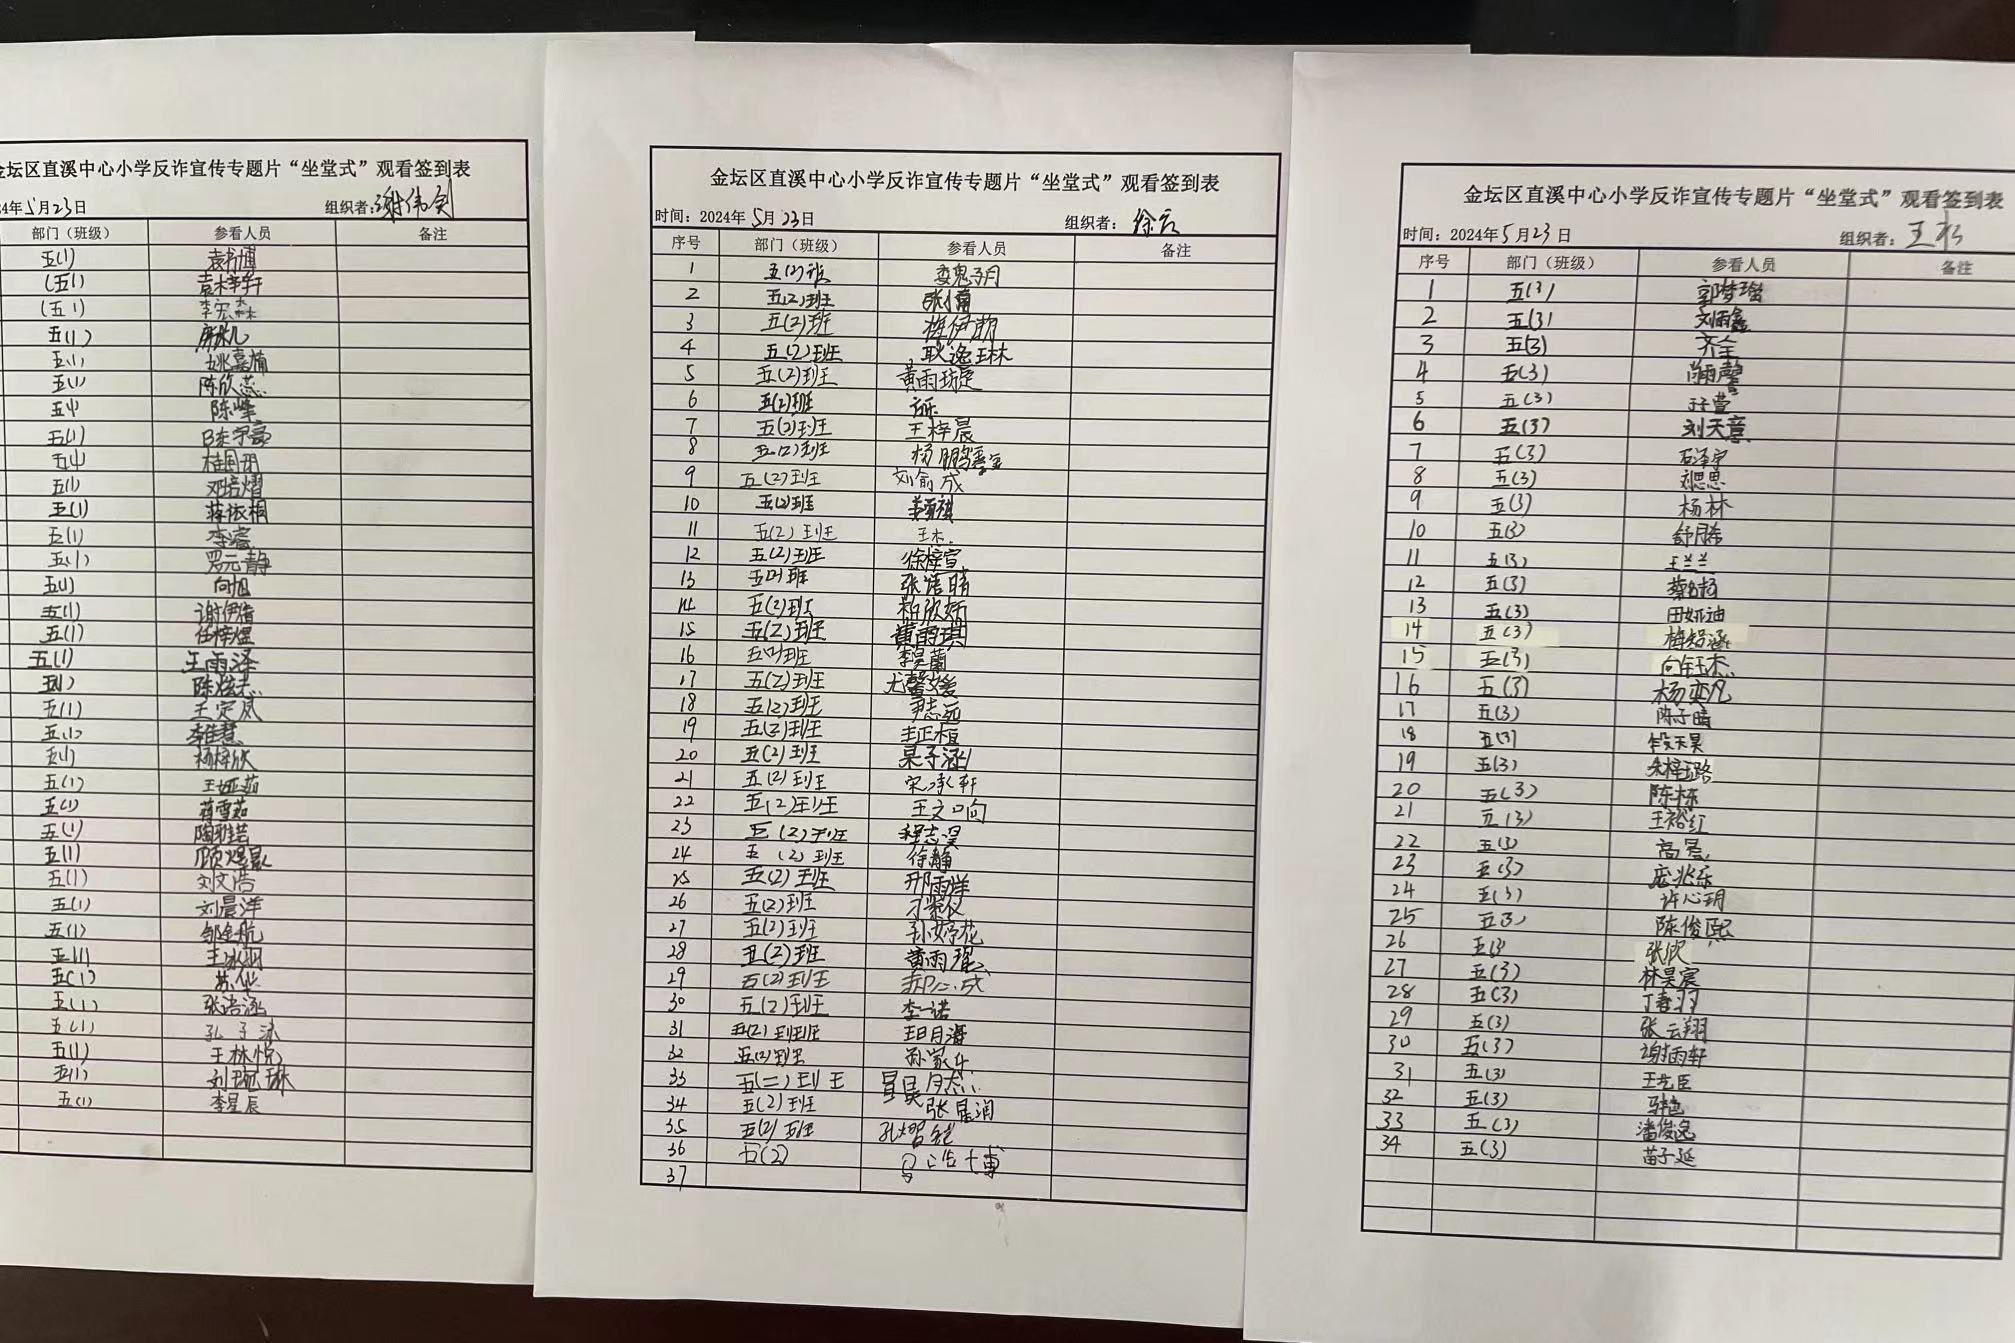 金坛区直溪中心小学反诈宣传专题片“坐堂式”观看签到表
24年5月23日 组织者:谢伟剑
部门（班级） 参看人员 备注
五(1) 袁书博
(五1) 袁梓轩
(五1) 李宏森
五(1)
五(1) 姚嘉楠
五(1) 陈欣蕊
五(1) 陈峰
五(1) 陈宇豪
五(1) 桂国玥
五(1) 邓培熠
五(1) 蒋依桐
五(1) 李睿
五(1) 罗元静
五(1) 向旭
五(1) 谢伊諾
五(1) 任梓煜
五(1) 王雨泽
五(1) 陈炫志
五(1) 王定成
五(1) 李佳慧
五(1) 杨梓欣
五(1) 王娅茹
五(1) 蒋雪茹
五(1)
五(1) 顾煜晨
五(1) 刘文浩
五(1) 刘晨洋
五(1) 邹金航
五(1) 王冰羽
五(1) 苏华
五(1) 张浩涵
五(1) 孔子涵
五(1) 王林悦
五(1) 刘琬琳
五(1) 李星辰
金坛区直溪中心小学反诈宣传专题片“坐堂式”观看签到表
时间：2024年5月23日 组织者：徐云
序号 部门（班级） 参看人员 备注
1 五(2)班
2 五(2)班 张倩
3 五(2)班 梅伊朋
4 五(2)班 耿逸琳
5 五(2)班 黄雨琁
6 五(2)班
7 五(2)班 王梓晨
8 五(2)班 杨鹏鑫
9 五(2)班 刘俞成
10 五(2)班
11 五(2)班 王木
12 五(2)班 徐梓宣
13 五(2)班 张倍晴
14 五(2)班 靳欣妍
15 五(2)班 黄雨琪
16 五(2)班 李昊蘭
17 五(2)班 尤馨媛
18 五(2)班 尹志远
19 五(2)班 王正桓
20 五(2)班 杲子涵
21 五(2)班 宋承轩
22 五(2)班 王文响
23 五(2)班 程志昊
24 五(2)班 徐静
25 五(2)班 邢雨洋
26 五(2)班 刁紫仪
27 五(2)班 孙婷花
28 五(2)班 黄雨瑶
29 五(2)班
30 五(2)班 李一诺
31 五(2)班 王明海
32 五(2)班 孙家乐
33 五(二)班
34 五(2)班 张晟润
35 五(2)班
36 五(2)
37
金坛区直溪中心小学反诈宣传专题片“坐堂式”观看签到表
时间：2024年5月23日 组织者：王衫
序号 部门（班级） 参看人员 备注
1 五(3) 郭梦瑶
2 五(3) 刘雨鑫
3 五(3) 齐全
4 五(3) 尚雨馨
5 五(3) 于子萱
6 五(3) 刘天意
7 五(3) 石泽宇
8 五(3) 刘思思
9 五(3) 杨林
10 五(3) 舒月希
11 五(3) 王兰兰
12 五(3) 蔡名扬
13 五(3) 田娅迪
14 五(3) 梅智涵
15 五(3) 向钰杰
16 五(3) 杨奕凡
17 五(3) 陈子晴
18 五(3) 段天昊
19 五(3) 朱梓璐
20 五(3) 陈栋
21 五(3) 王裕红
22 五(3) 高景
23 五(3) 庞兆乐
24 五(3) 许心玥
25 五(3) 陈俊熙
26 五(3) 张欣
27 五(3) 林昊宸
28 五(3) 丁春羽
29 五(3) 张云翔
30 五(3) 谢雨轩
31 五(3) 王艺臣
32 五(3) 马艳
33 五(3) 潘俊逸
34 五(3) 苗子延